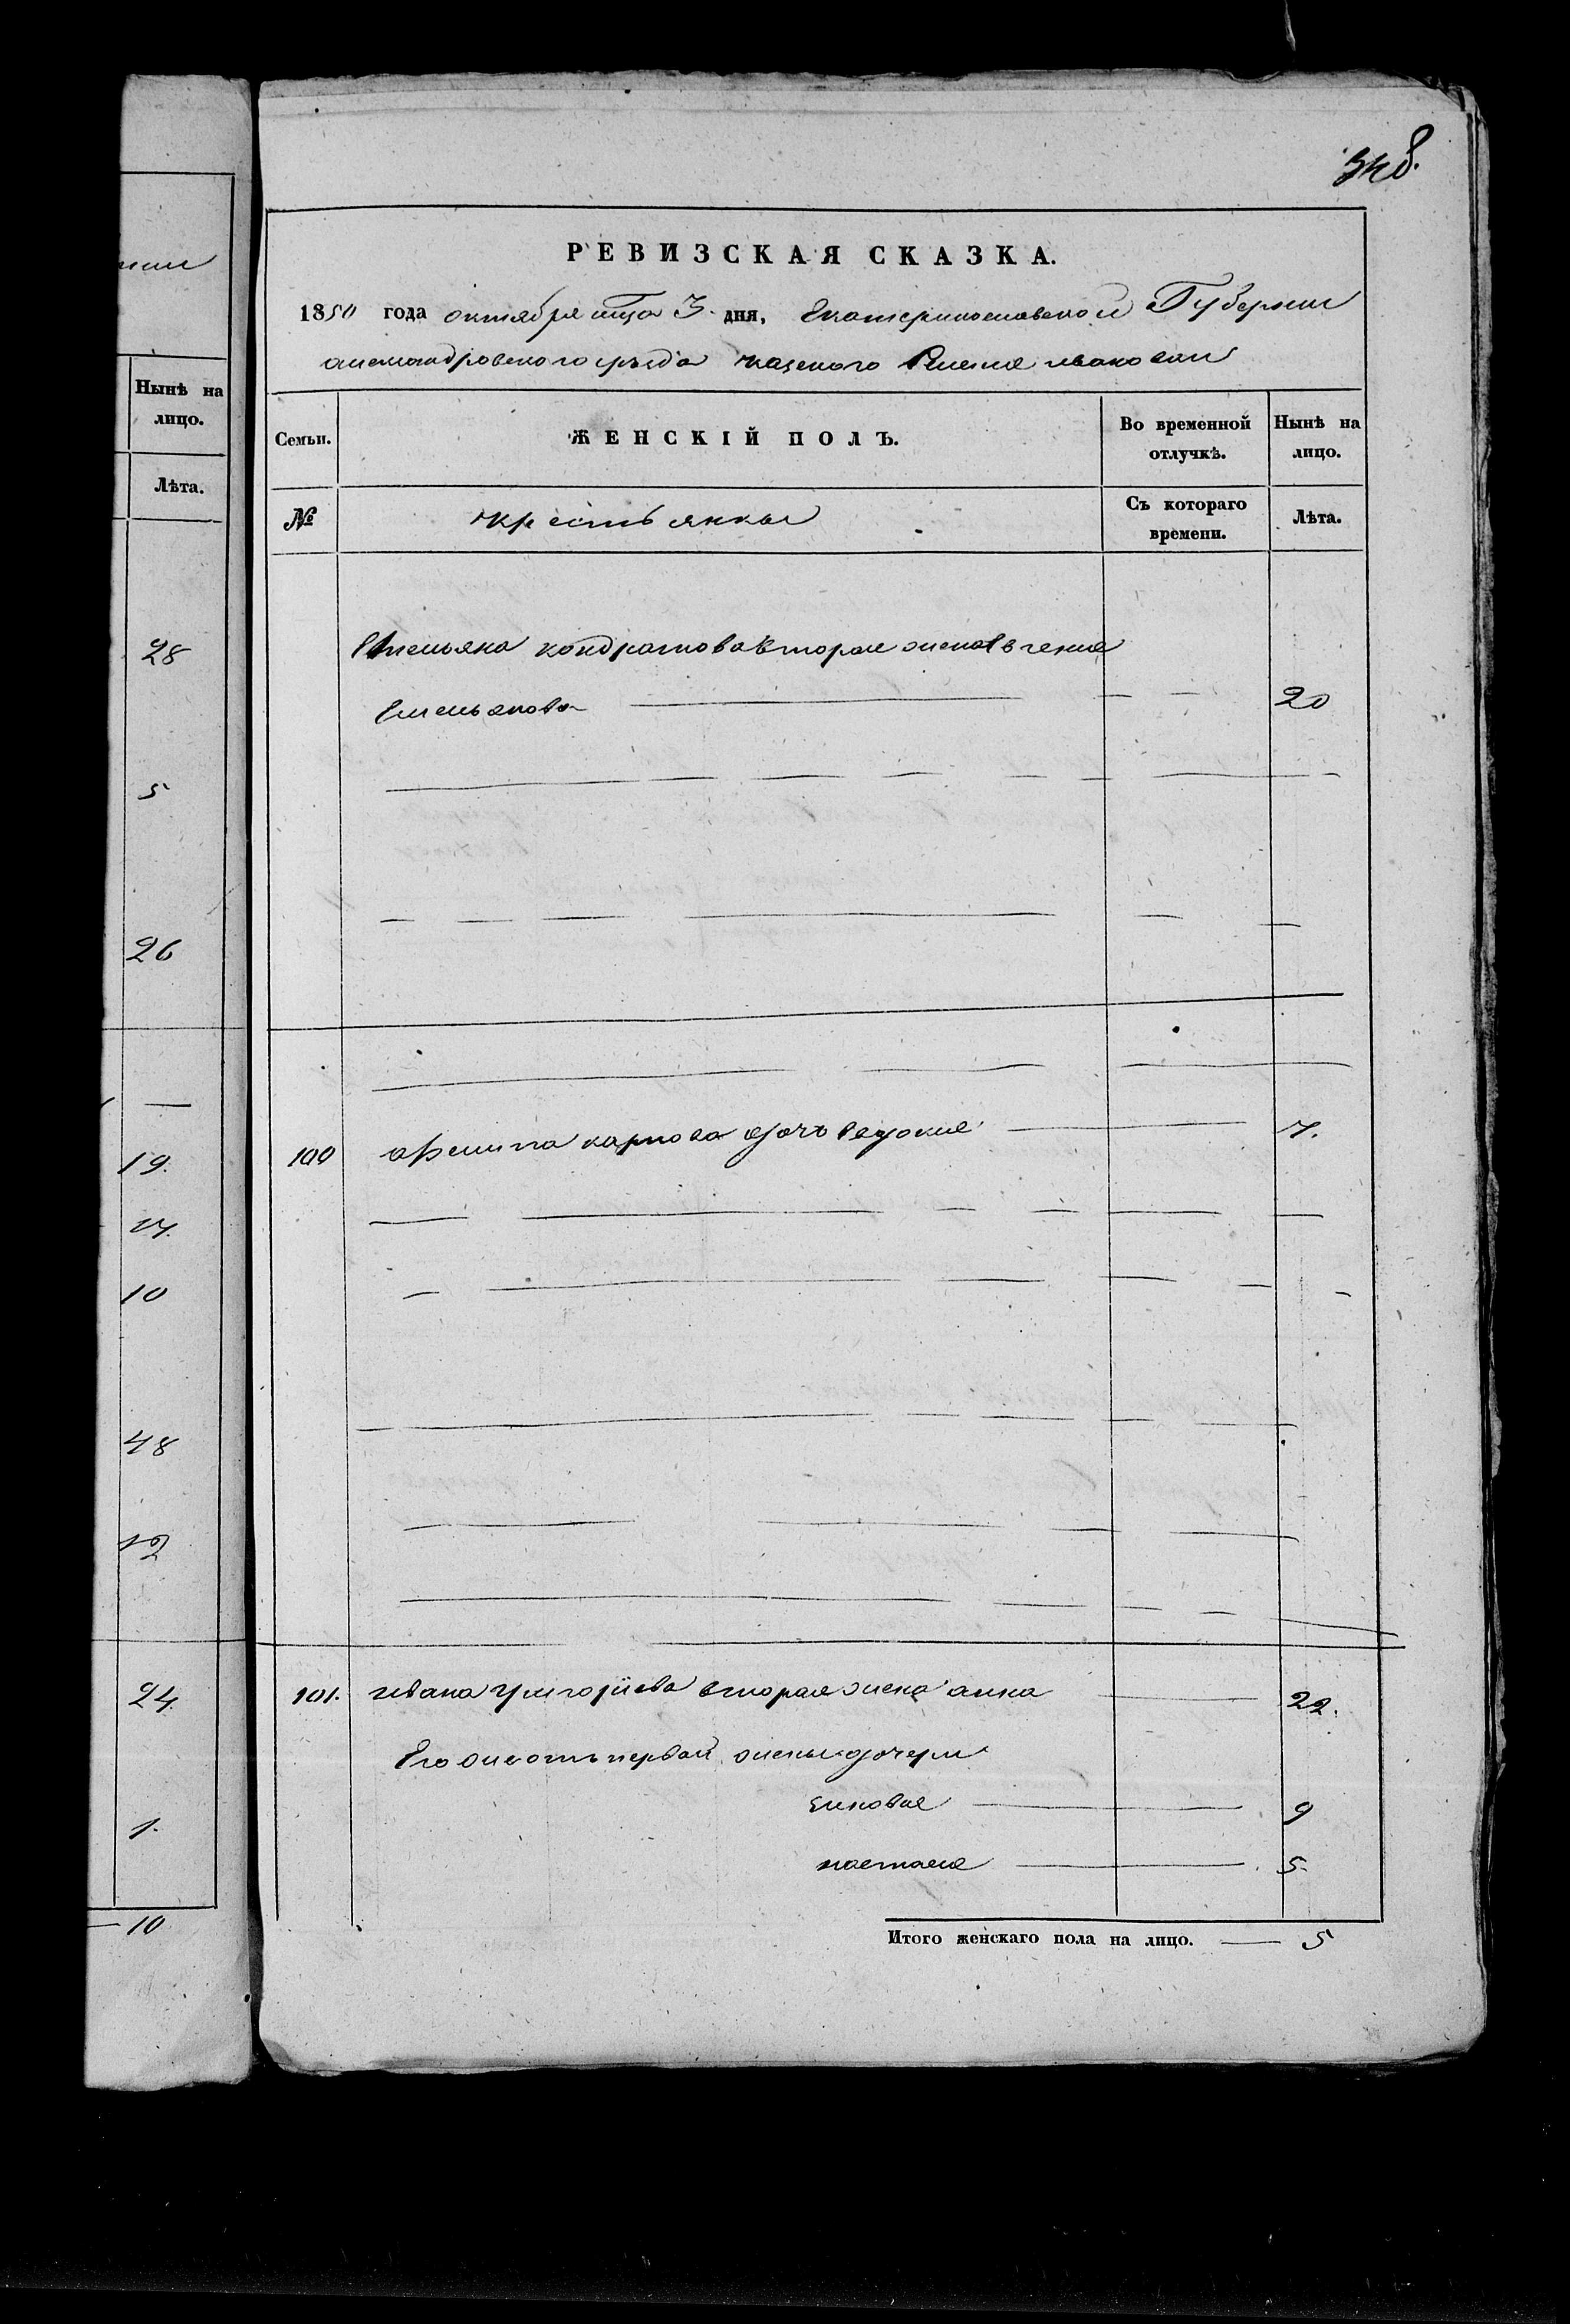 348.
РЕВИЗСКАЯ СКАЗКА.
1850 года октября мца 3 дня, Екатеринославской Губернии
александровского уезда казеного Селения ивановки
Нынѣ на
лицо.
Лѣта.
28
5
26
—
19.
14.
10
48
12
24
1.
— 10
Семьи.
ЖЕНСКІЙ ПОЛЪ.
Во временной
отлучкѣ.
Нынѣ на
лицо.
№
крестьянки
Съ котораго
времени.
Лѣта.
Емельяна кондратова вторая жена Евгения
Емельянова 20
100 карпова дочь Евдокия 7.
101. ивана григорiева вторая жена анна 22.
Его же отъ первой жены дочери
зиновия 9
настасия 5
Итого женскаго пола на лицо. — 5